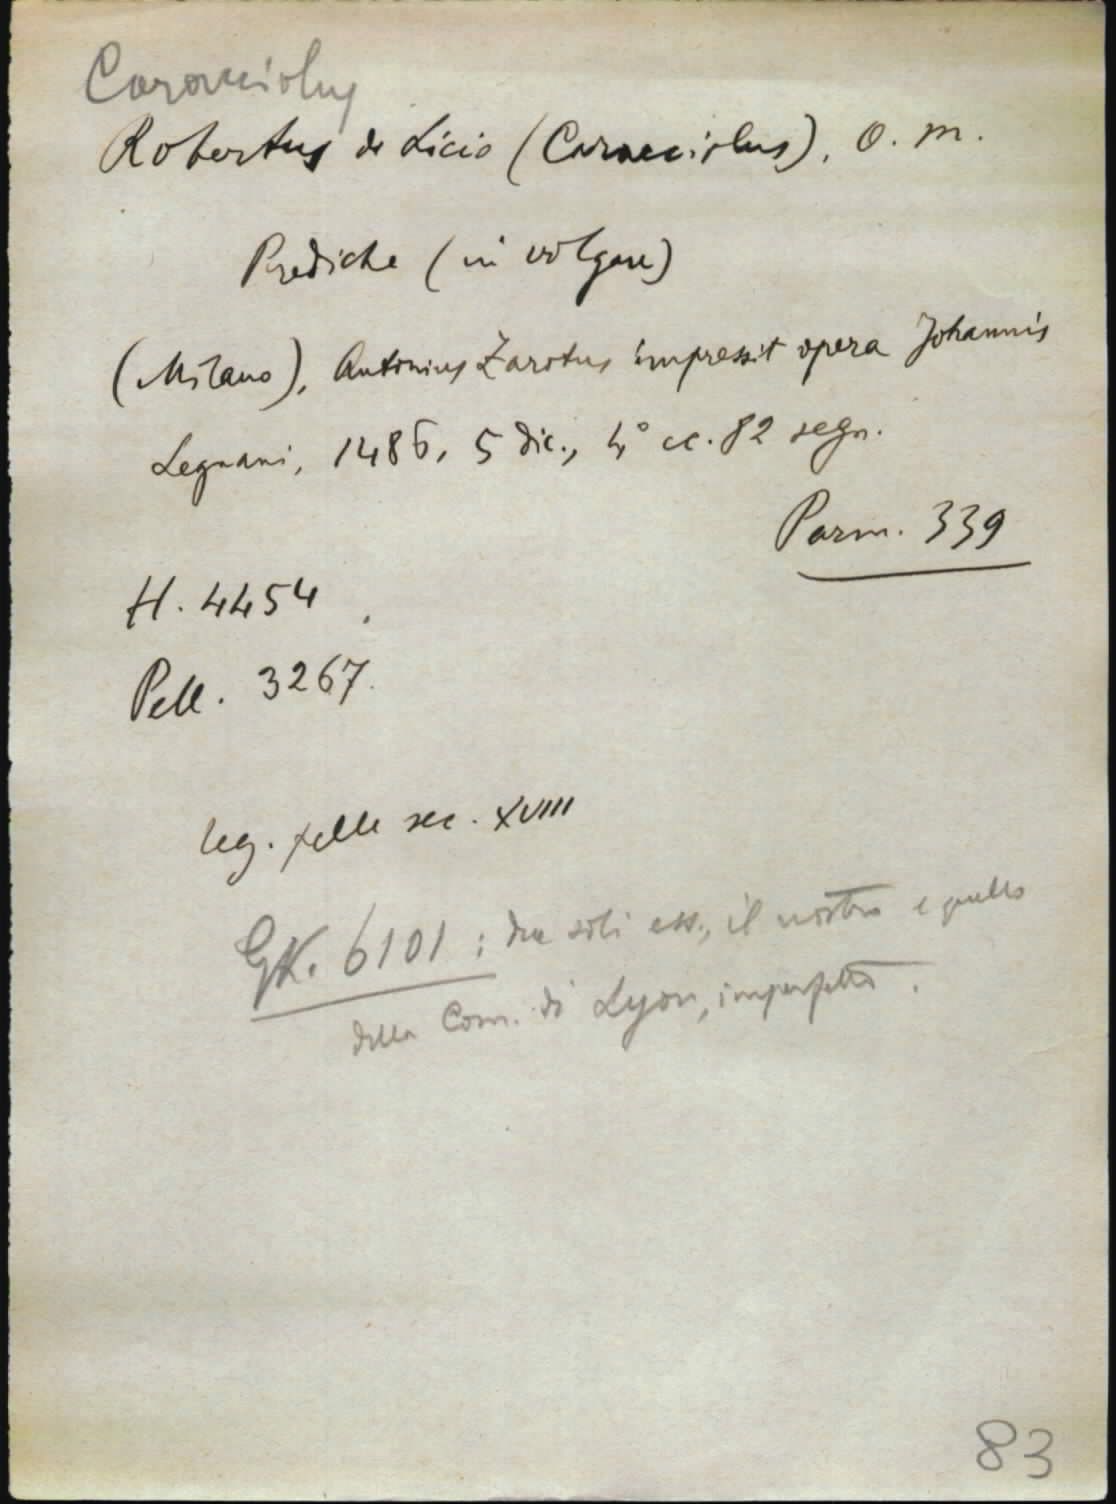 Caracciolus
Robertus de Licio (Caracciolus), O. M.
Prediche (in volgare)
(Milano), Antonius Zarotus impressit opera Johannis
Legnani, 1486, 5 dic., 4° cc. 82 segn.
Parm. 339
H. 4454
Pell. 3267.
leg. pelle sec. XVIII
GK. 6101 : due soli ess., il nostro e quello
della Com. di Lyon, imperfetto.
83